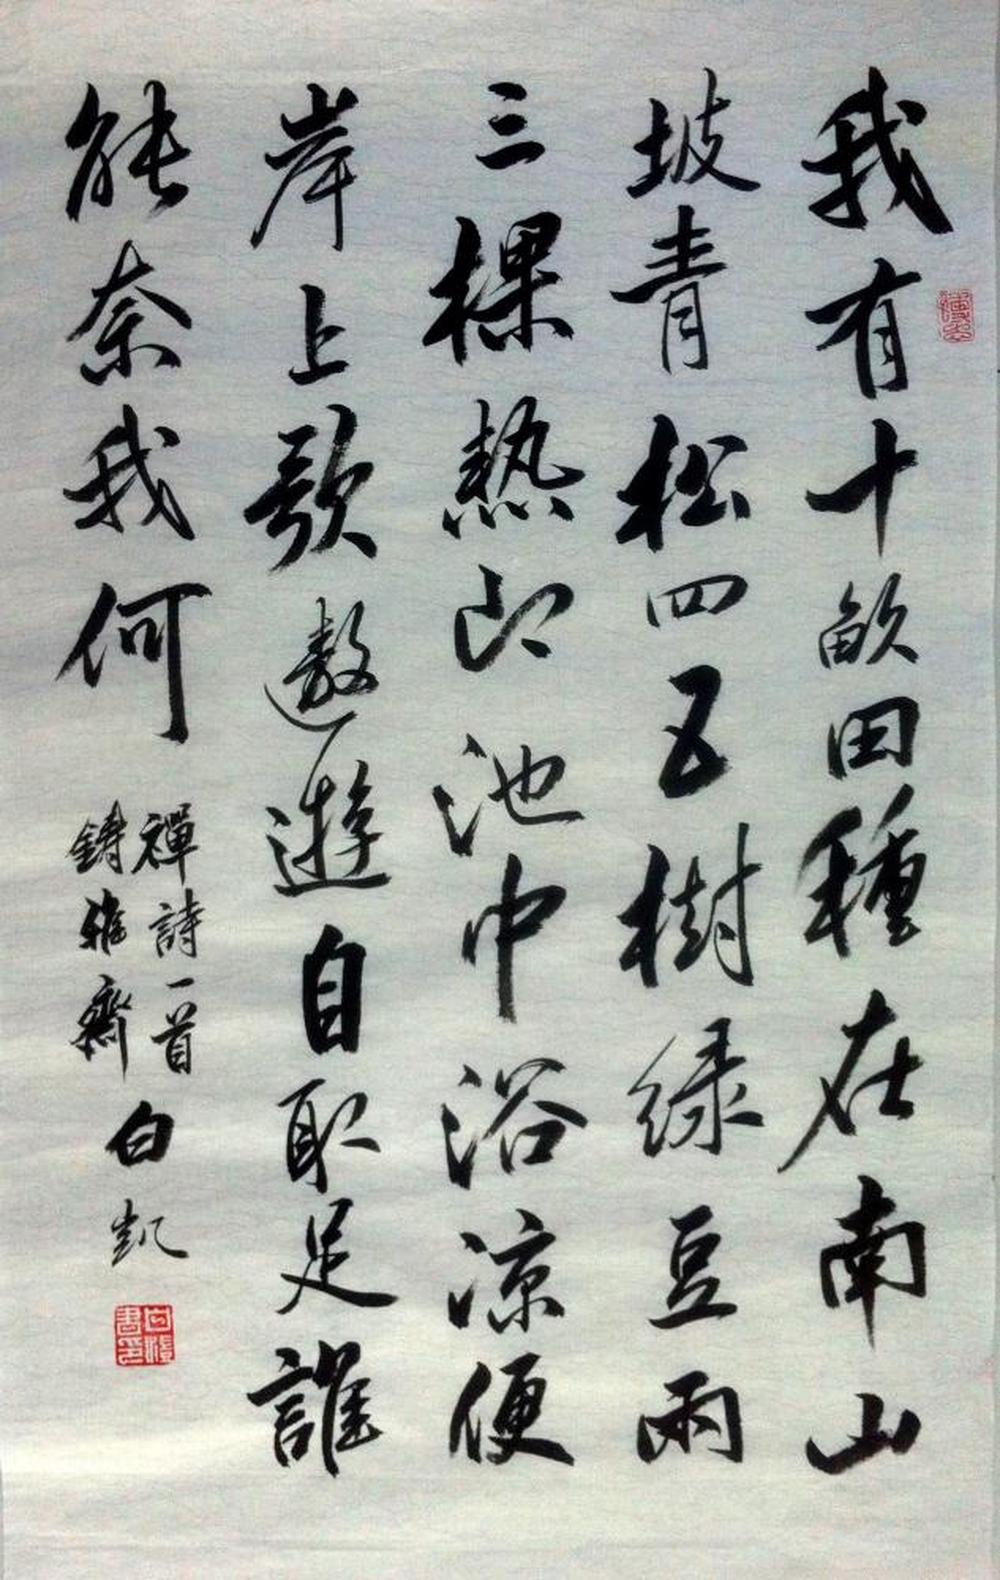 我有十畝田種在南山
坡青松四五樹绿豆兩
三棵熱即池中浴凉便
岸上歌遨遊自取足誰
能奈我何
禪詩一首
鑄雅齋
白凱